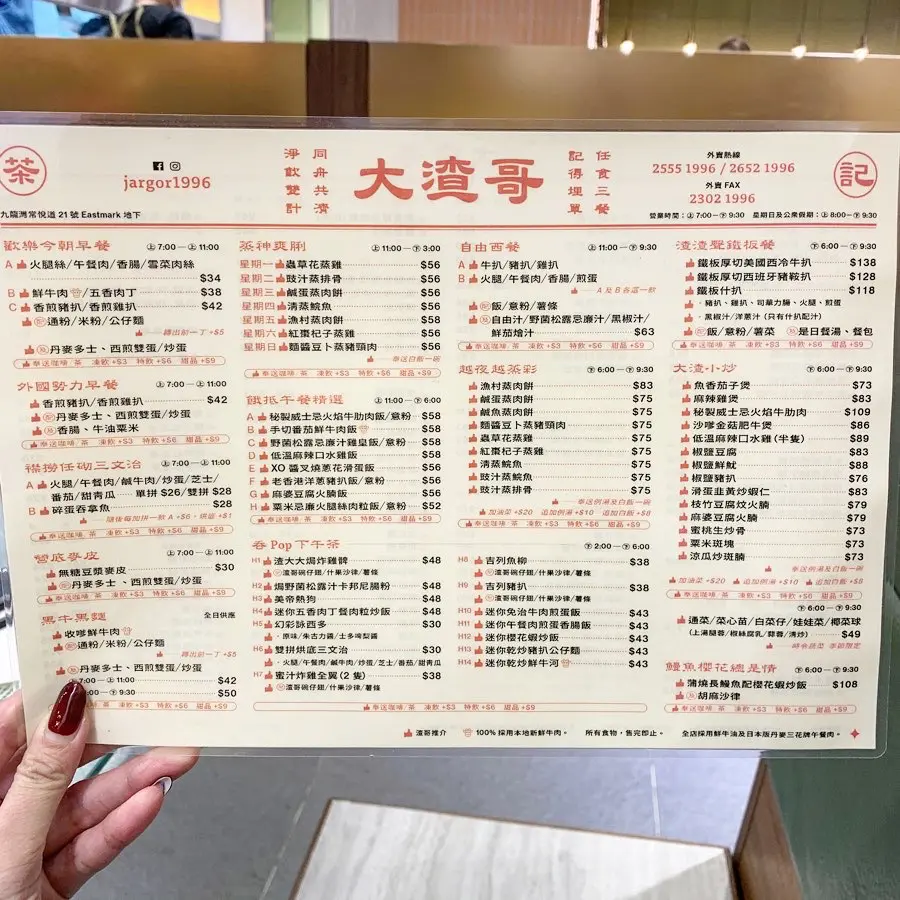 茶
jargor1996
九龍灣常悅道 21 號 Eastmark 地下
淨飲雙計
同舟共濟
大渣哥
記得埋單
任食三餐
外賣熱線
2555 1996 / 2652 1996
外賣 FAX
2302 1996
營業時間：上 7:00—下 9:30 星期日及公眾假期：上 8:00—下 9:30
記
歡樂今朝早餐 上 7:00 — 上 11:00
A 火腿絲/午餐肉/香腸/雪菜肉絲
$34
B 鮮牛肉/五香肉丁 $38
C 香煎豬扒/香煎雞扒 $42
配 通粉/米粉/公仔麵
轉出前一丁 +$5
配 丹麥多士、西煎雙蛋/炒蛋
奉送咖啡/茶 凍飲 +$3 特飲 +$6 甜品 +$9
外國勢力早餐 上 7:00 — 上 11:00
香煎豬扒/香煎雞扒 $42
配 丹麥多士、西煎雙蛋/炒蛋
香腸、牛油粟米
奉送咖啡/茶 凍飲 +$3 特飲 +$6 甜品 +$9
襟撈任砌三文治 上 7:00 — 上 11:00
A 火腿/午餐肉/鹹牛肉/炒蛋/芝士/
番茄/甜青瓜 單拼 $26/雙拼 $28
B 碎蛋吞拿魚 $28
隨後每加拼一款 A +$6、烘底 +$1
奉送咖啡/茶 凍飲 +$3 特飲 +$6 甜品 +$9
營底麥皮 上 7:00 — 上 11:00
無糖豆漿麥皮 $30
配 丹麥多士、西煎雙蛋/炒蛋
奉送咖啡/茶 凍飲 +$3 特飲 +$6 甜品 +$9
黑牛黑麵 全日供應
收嗲鮮牛肉
配 通粉/米粉/公仔麵
轉出前一丁 +$5
配 丹麥多士、西煎雙蛋/炒蛋
上 7:00 — 上 11:00 $42
9:30 $50
凍飲 +$3 特飲 +$6 甜品 +$9
蒸神爽脷 上 11:00 — 下 3:00
星期一 蟲草花蒸雞 $56
星期二 豉汁蒸排骨 $56
星期三 鹹蛋蒸肉餅 $56
星期四 清蒸鯇魚 $56
星期五 漁村蒸肉餅 $58
星期六 紅棗杞子蒸雞 $56
星期日 麵醬豆卜蒸豬頸肉 $56
奉送白飯一碗
奉送咖啡/茶 凍飲 +$3 特飲 +$6 甜品 +$9
餓抵午餐精選 上 11:00 — 下 6:00
A 秘製威士忌火焰牛肋肉飯/意粉 $58
B 手切番茄鮮牛肉飯 $58
C 野菌松露忌廉汁雞皇飯/意粉 $58
D 低溫麻辣口水雞飯 $58
E XO 醬叉燒蔥花滑蛋飯 $56
F 老香港洋蔥豬扒飯/意粉 $56
G 麻婆豆腐火腩飯 $56
H 粟米忌廉火腿絲肉粒飯/意粉 $52
奉送咖啡/茶 凍飲 +$3 特飲 +$6 甜品 +$9
吞 Pop 下午茶 下 2:00 — 下 6:00
H1 渣大大焗炸雞髀 $48
配 渣哥碗仔翅/什果沙律/薯條
H2 焗野菌松露汁卡邦尼腸粉 $48
H3 美帝熱狗 $48
H4 迷你五香肉丁餐肉粒炒飯 $48
H5 幻彩詠西多 $30
・原味/朱古力醬/士多啤梨醬
H6 雙拼烘底三文治 $30
・火腿/午餐肉/鹹牛肉/炒蛋/芝士/番茄/甜青瓜
H7 蜜汁炸雞全翼 (2 隻) $38
配 渣哥碗仔翅/什果沙律/薯條
H8 吉列魚柳 $38
配 渣哥碗仔翅/什果沙律/薯條
H9 吉列豬扒 $38
配 渣哥碗仔翅/什果沙律/薯條
H10 迷你免治牛肉煎蛋飯 $43
H11 迷你午餐肉煎蛋香腸飯 $43
H12 迷你櫻花蝦炒飯 $43
H13 迷你乾炒豬扒公仔麵 $43
H14 迷你乾炒鮮牛河 $43
奉送咖啡/茶 凍飲 +$3 特飲 +$6 甜品 +$9
自由西餐 上 11:00 — 下 9:30
A 牛扒/豬扒/雞扒
B 火腿/午餐肉/香腸/煎蛋
A 及 B 各選一款
配 飯/意粉/薯條
配 自由汁/野菌松露忌廉汁/黑椒汁/
鮮茄燴汁 $63
奉送咖啡/茶 凍飲 +$3 特飲 +$6 甜品 +$9
越夜越蒸彩 下 6:00 — 下 9:30
漁村蒸肉餅 $83
鹹蛋蒸肉餅 $75
鹹魚蒸肉餅 $75
麵醬豆卜蒸豬頸肉 $75
蟲草花蒸雞 $75
紅棗杞子蒸雞 $75
清蒸鯇魚 $75
豉汁蒸鯇魚 $75
豉汁蒸排骨 $75
奉送例湯及白飯一碗
加油菜 +$20 追加例湯 +$10 追加白飯 +$8
奉送咖啡/茶 凍飲 +$3 特飲 +$6 甜品 +$9
渣渣聲鐵板餐 下 6:00 — 下 9:30
鐵板厚切美國西冷牛扒 $138
鐵板厚切西班牙豬鞍扒 $128
鐵板什扒 $118
・豬扒、雞扒、司華力腸、火腿、煎蛋
・黑椒汁/洋蔥汁 (只有什扒配汁)
配 飯/意粉/薯菜 是日餐湯、餐包
奉送咖啡/茶 凍飲 +$3 特飲 +$6 甜品 +$9
大渣小炒 下 6:00 — 下 9:30
魚香茄子煲 $73
麻辣雞煲 $83
秘製威士忌火焰牛肋肉 $109
沙嗲金菇肥牛煲 $86
低溫麻辣口水雞 (半隻) $89
椒鹽豆腐 $83
椒鹽鮮魷 $88
椒鹽豬扒 $76
滑蛋韭黃炒蝦仁 $83
枝竹豆腐炆火腩 $79
麻婆豆腐火腩 $79
蜜桃生炒骨 $73
粟米斑塊 $73
涼瓜炒斑腩 $73
奉送例湯及白飯一碗
加油菜 +$20 追加例湯 +$10 追加白飯 +$8
奉送咖啡/茶 凍飲 +$3 特飲 +$6 甜品 +$9
下 6:00 — 下 9:30
通菜/菜心苗/白菜仔/娃娃菜/椰菜球
(上湯腿蓉、椒絲腐乳、蒜蓉、清炒) $49
時令蔬菜 季節限定
鰻魚櫻花總是情 下 6:00 — 下 9:30
蒲燒長鰻魚配櫻花蝦炒飯 $108
配 胡麻沙律
奉送咖啡/茶 凍飲 +$3 特飲 +$6 甜品 +$9
渣哥推介 100% 採用本地新鮮牛肉。 所有食物，售完即止。 全店採用鮮牛油及日本版丹麥三花牌午餐肉。